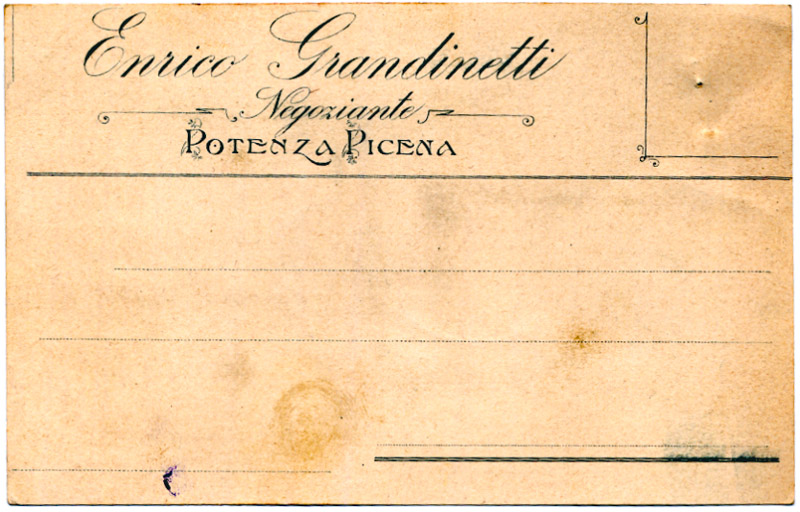 Enrico Grandinetti
Negoziante
POTENZA PICENA